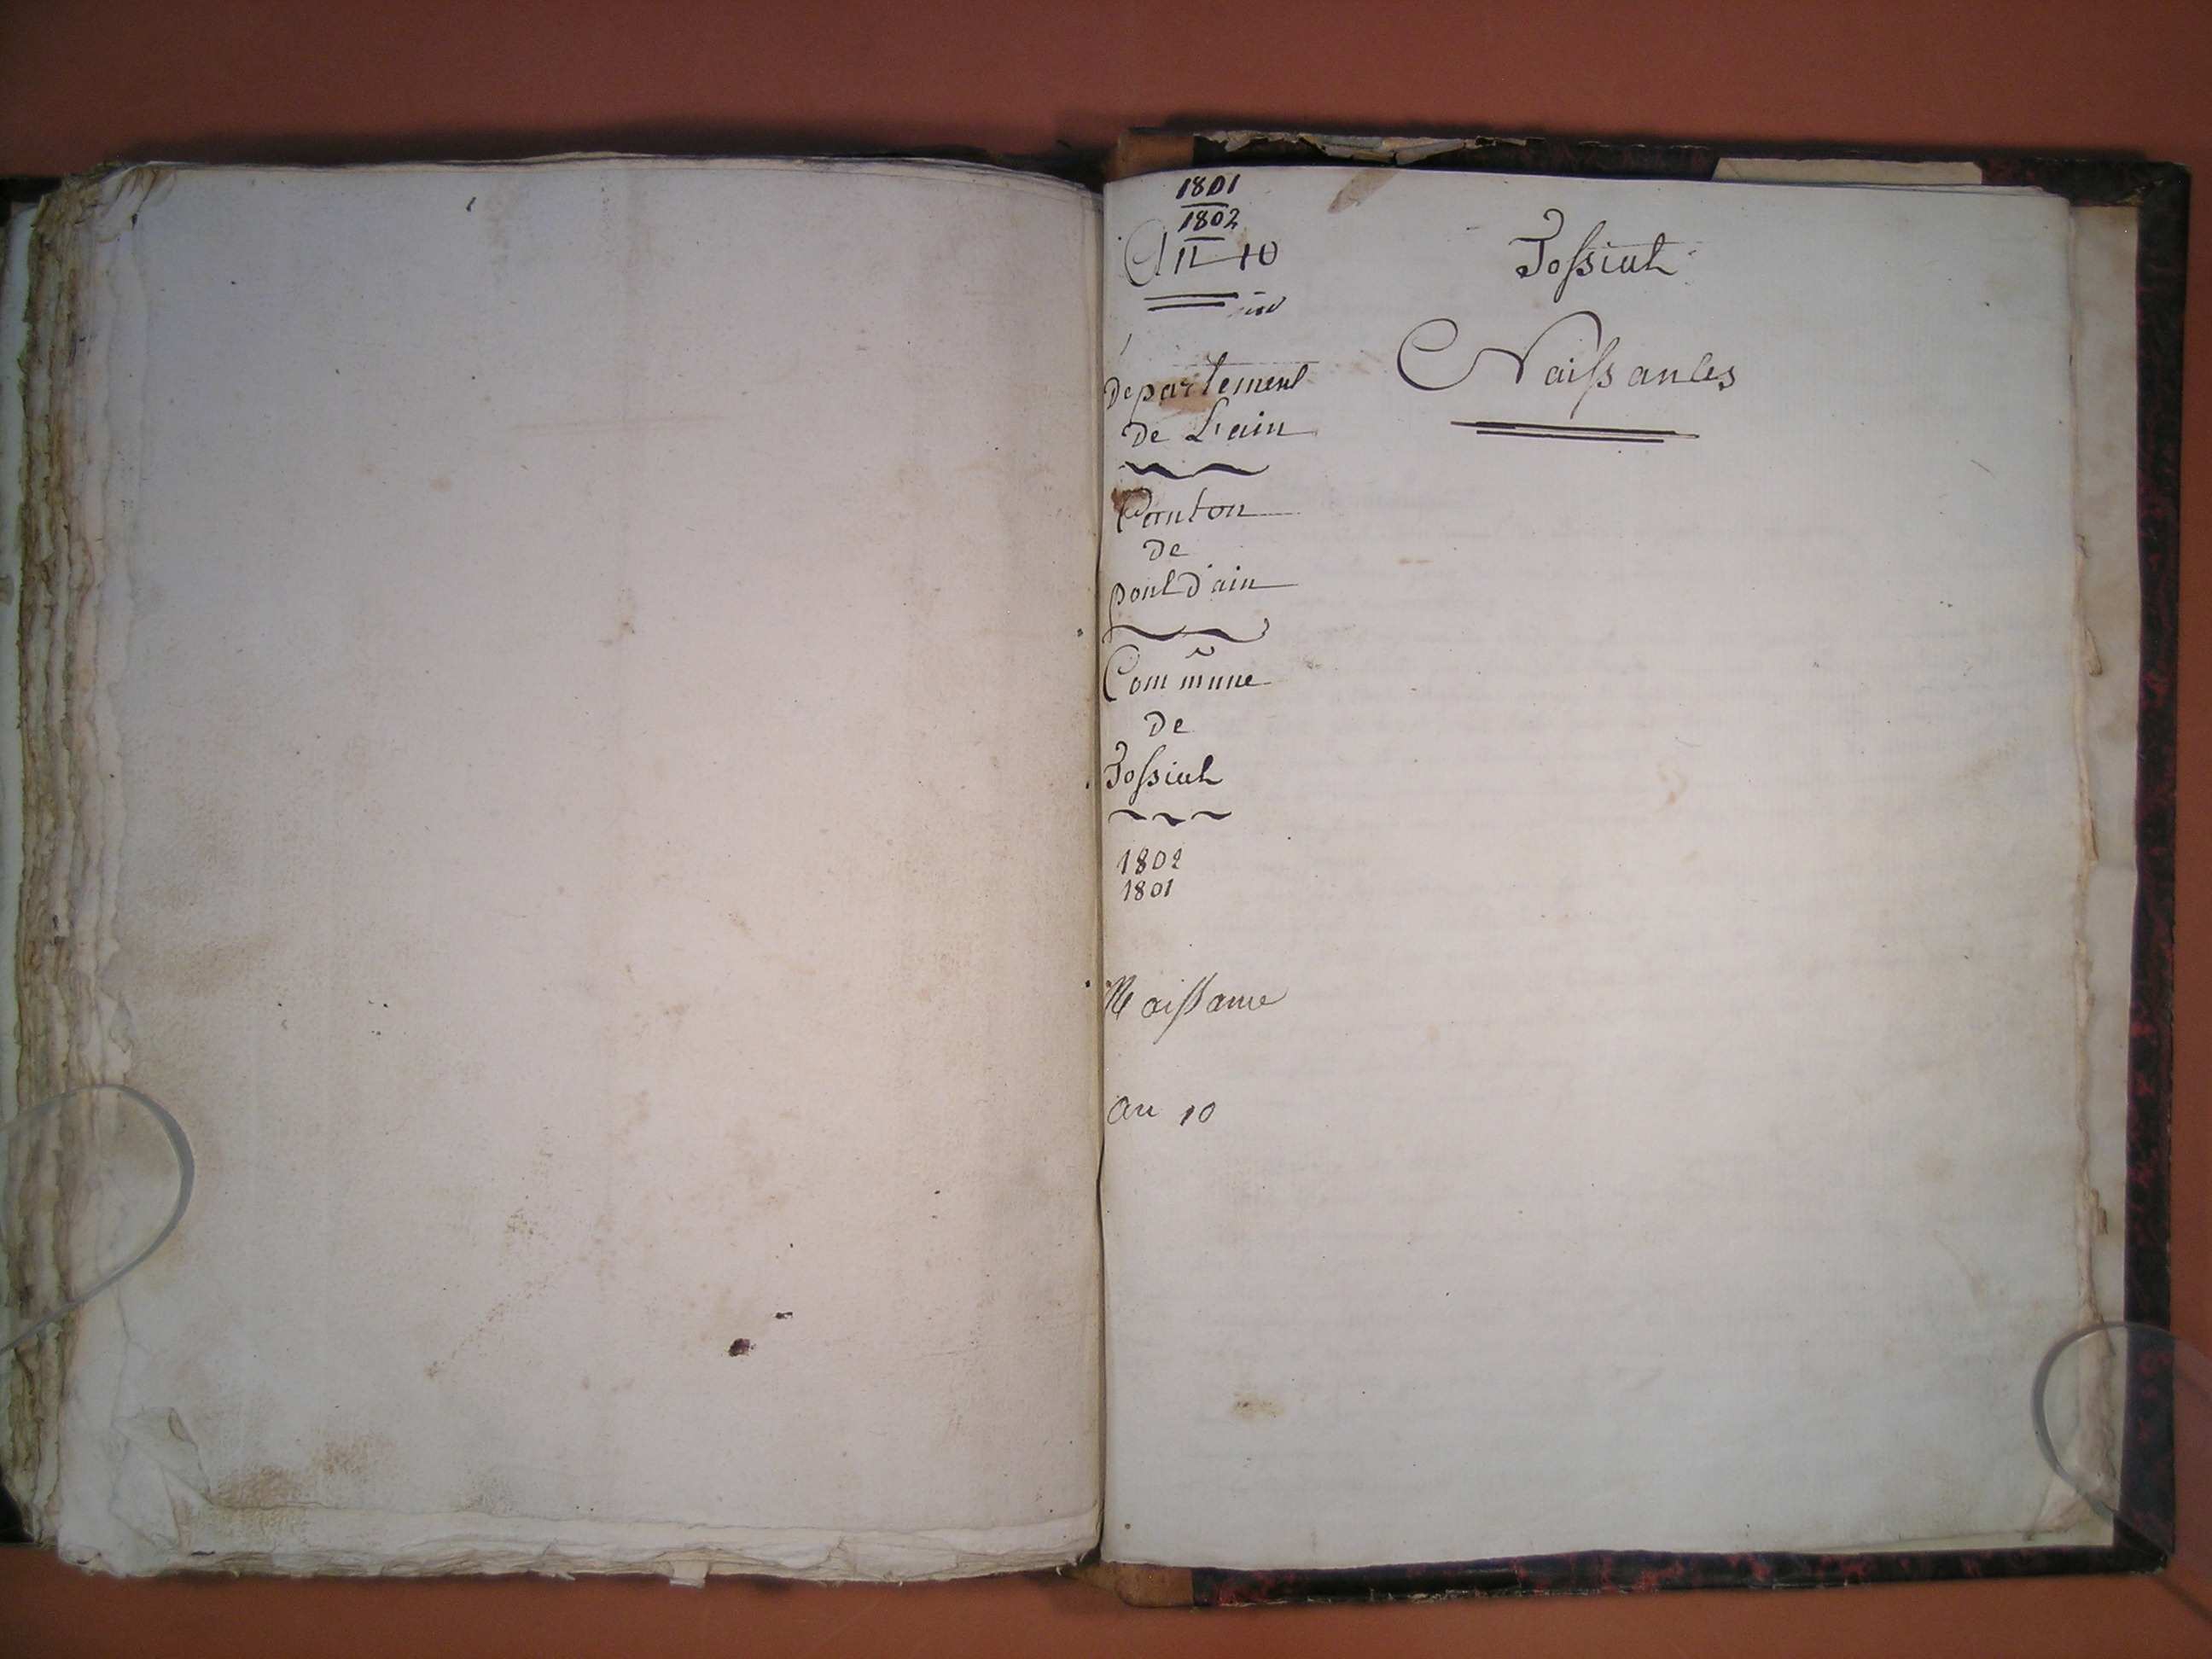 1801
1802
An 10
Departement
de L'ain
Canton
de
pont d'ain
Commune
de
Jossiat
1802
1801
Naissance
an 10
Jossiat
Naissances